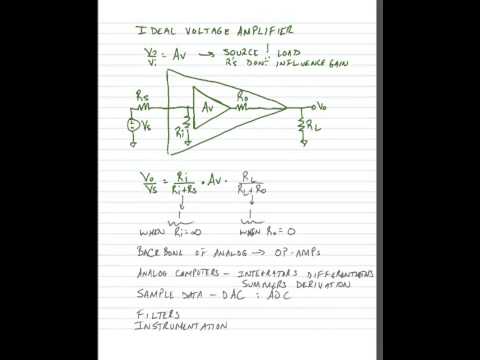 IDEAL VOLTAGE AMPLIFIER
Vo/Vi = Av → SOURCE ! LOAD
R's DON'T INFLUENCE GAIN
Rs
Av
Ro
Vo
Vs
Ri
RL
Vo/Vs = Ri/(Ri+Rs) • Av • RL/(RL+Ro)
1 1
WHEN Ri=∞ WHEN Ro=0
BACKBONE OF ANALOG → OP-AMPS
ANALOG COMPUTERS - INTEGRATORS
SUMMERS DERIVATION
SAMPLE DATA - DAC : ADC
FILTERS
INSTRUMENTATION